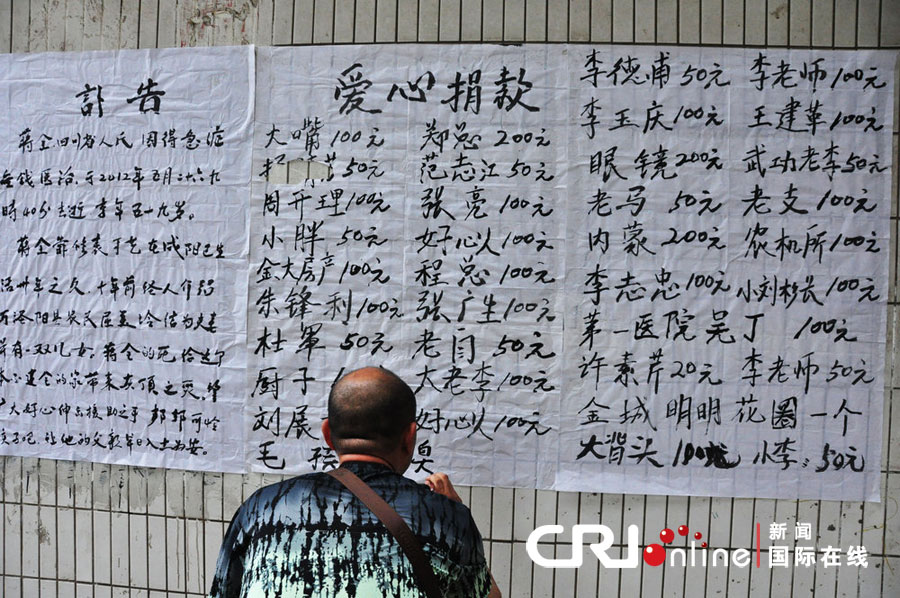 訃告
蒋全四川省人氏因得急症
无钱医治,于2012年五月二十六九
時40分去逝享年五十九岁。
蒋全爺
在咸阳已生
活卅年之久,十年前经人介绍
结为夫妻
有一双儿女,蒋全的死给这个
的家带来灭顶之灾,
大好心伸出援助之手帮帮可怜
孩子吧,让他的父親早日入土为安。
爱心捐款
大嘴100元 郑总200元
50元 范志江50元
周开理100元 张亮100元
小胖50元 好心人100元
金大房产100元 程总100元
朱锋利100元 张广生100元
杜军50元 老闫50元
厨子 大老李100元
刘展 好心人100元
毛
李德甫50元 李老师100元
李玉庆100元 王建革100元
眼镜200元 武功老李50元
老马50元 老支100元
内蒙200元 农机所100元
李志忠100元 小刘村长100元
第一医院吴丁100元
许素芹20元 李老师50元
金城明明花圈一个
大背头100元 小李50元
CRIonline 新闻
国际在线